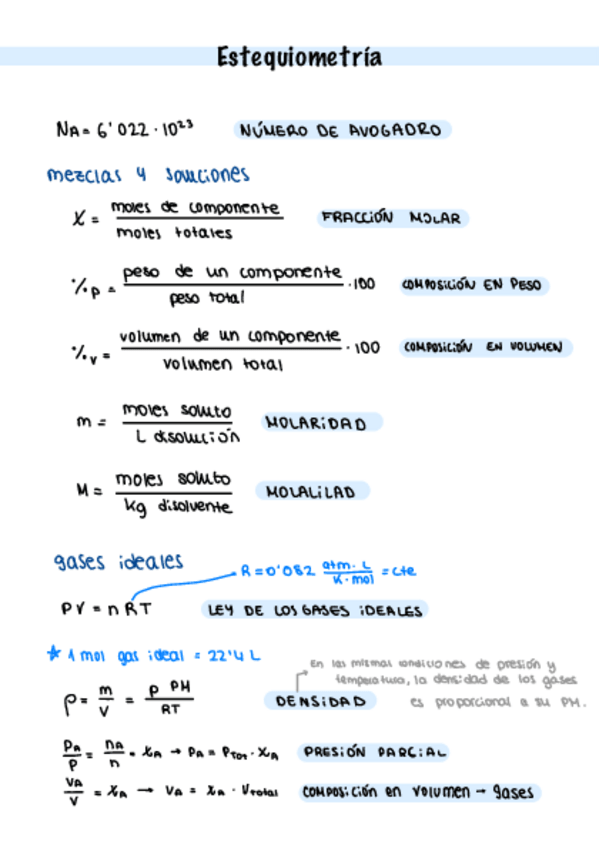 Estequiometría
NA = 6'022 · 10²³ NÚMERO DE AVOGADRO
mezclas y soluciones
X = moles de componente / moles totales FRACCIÓN MOLAR
%p = peso de un componente / peso total · 100 COMPOSICIÓN EN PESO
%v = volumen de un componente / volumen total · 100 COMPOSICIÓN EN VOLUMEN
m = moles soluto / L disolución MOLARIDAD
M = moles soluto / kg disolvente MOLALILAD
gases ideales
R = 0'082 atm · L / K · mol = cte
PV = nRT LEY DE LOS GASES IDEALES
★ 1 mol gas ideal = 22'4 L
En las mismas condiciones de presión y
temperatura, la densidad de los gases
es proporcional a su PM.
ρ = m / V = P PM / RT DENSIDAD
PA / P = nA / n = XA → PA = PTOT · XA PRESIÓN PARCIAL
VA / V = XA → VA = XA · Vtotal COMPOSICIÓN en volumen → gases